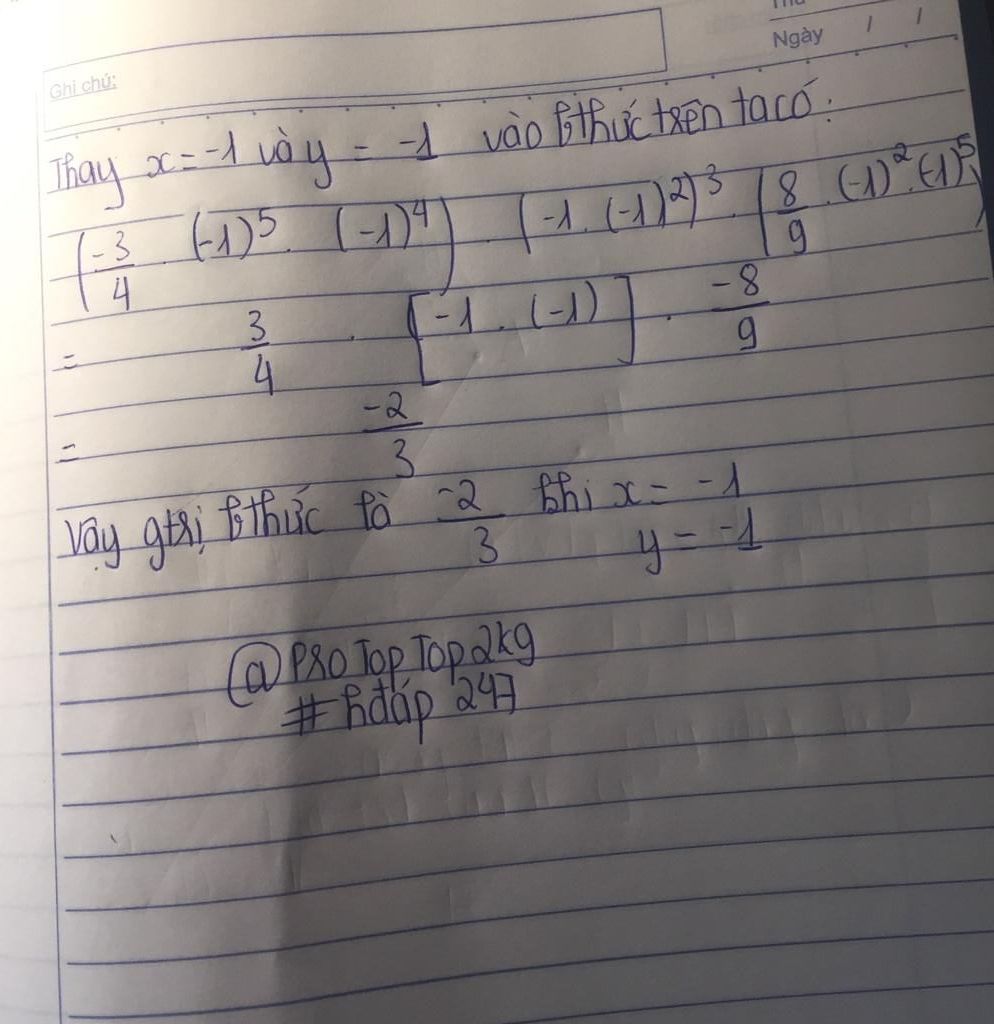 Ngày / /
Ghi chú:
Thay x = -1 và y = -1 vào bthức trên ta có:
(-3/4 (-1)^5 . (-1)^4) . (-1 . (-1)^2)^3 . (8/9 . (-1)^2 . (-1)^5)
= 3/4 . [-1 . (-1)] . -8/9
= -2/3
Vậy gtrị bthức là -2/3 khi x = -1
y = -1
@ProTopTop2k9
#hđáp 247